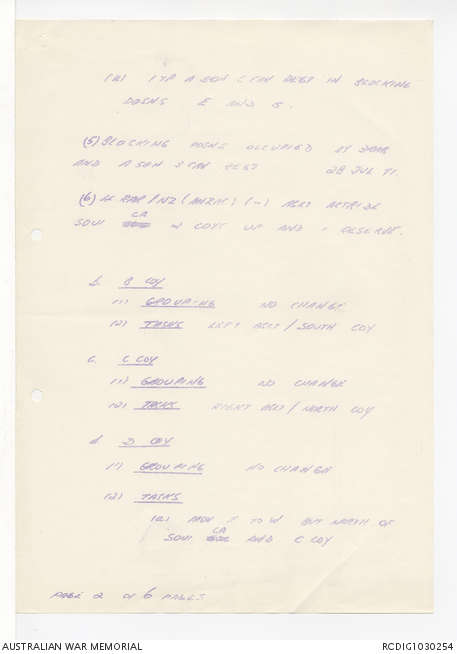 (b) 1 TP A SQN 3 CAV REGT IN BLOCKING
POSNS E AND B.
(5) BLOCKING POSNS OCCUPIED BY
AND A SQN 3 CAV REGT 28 JUL 71.
(6) 4 RAR/NZ (ANZAC) (-)
SOUI CA COYS UP AND 1 RESERVE.
b. B COY
(1) GROUPING NO CHANGE
(2) TASKS LEFT ASLT/SOUTH COY
c. C COY
(1) GROUPING NO CHANGE
(2) TASKS RIGHT ASLT/NORTH COY
d. D COY
(1) GROUPING NO CHANGE
(2) TASKS
(a) MOV E TO W BUT NORTH OF
SOUI CA AND C COY
PAGE 2 OF 6 PAGES
AUSTRALIAN WAR MEMORIAL
RCDIG1030254